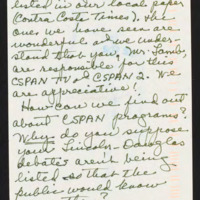 listed in our local paper
(Contra Costa Times). The
ones we have seen are
wonderful as we under-
stand that you, Mr. Lamb,
are responsible for this
CSPAN TV & CSPAN 2. We
are appreciative!
How can we find out
about CSPAN programs?
Why do you suppose
your Lincoln-Douglas
debates aren't being
listed so that the
public would know